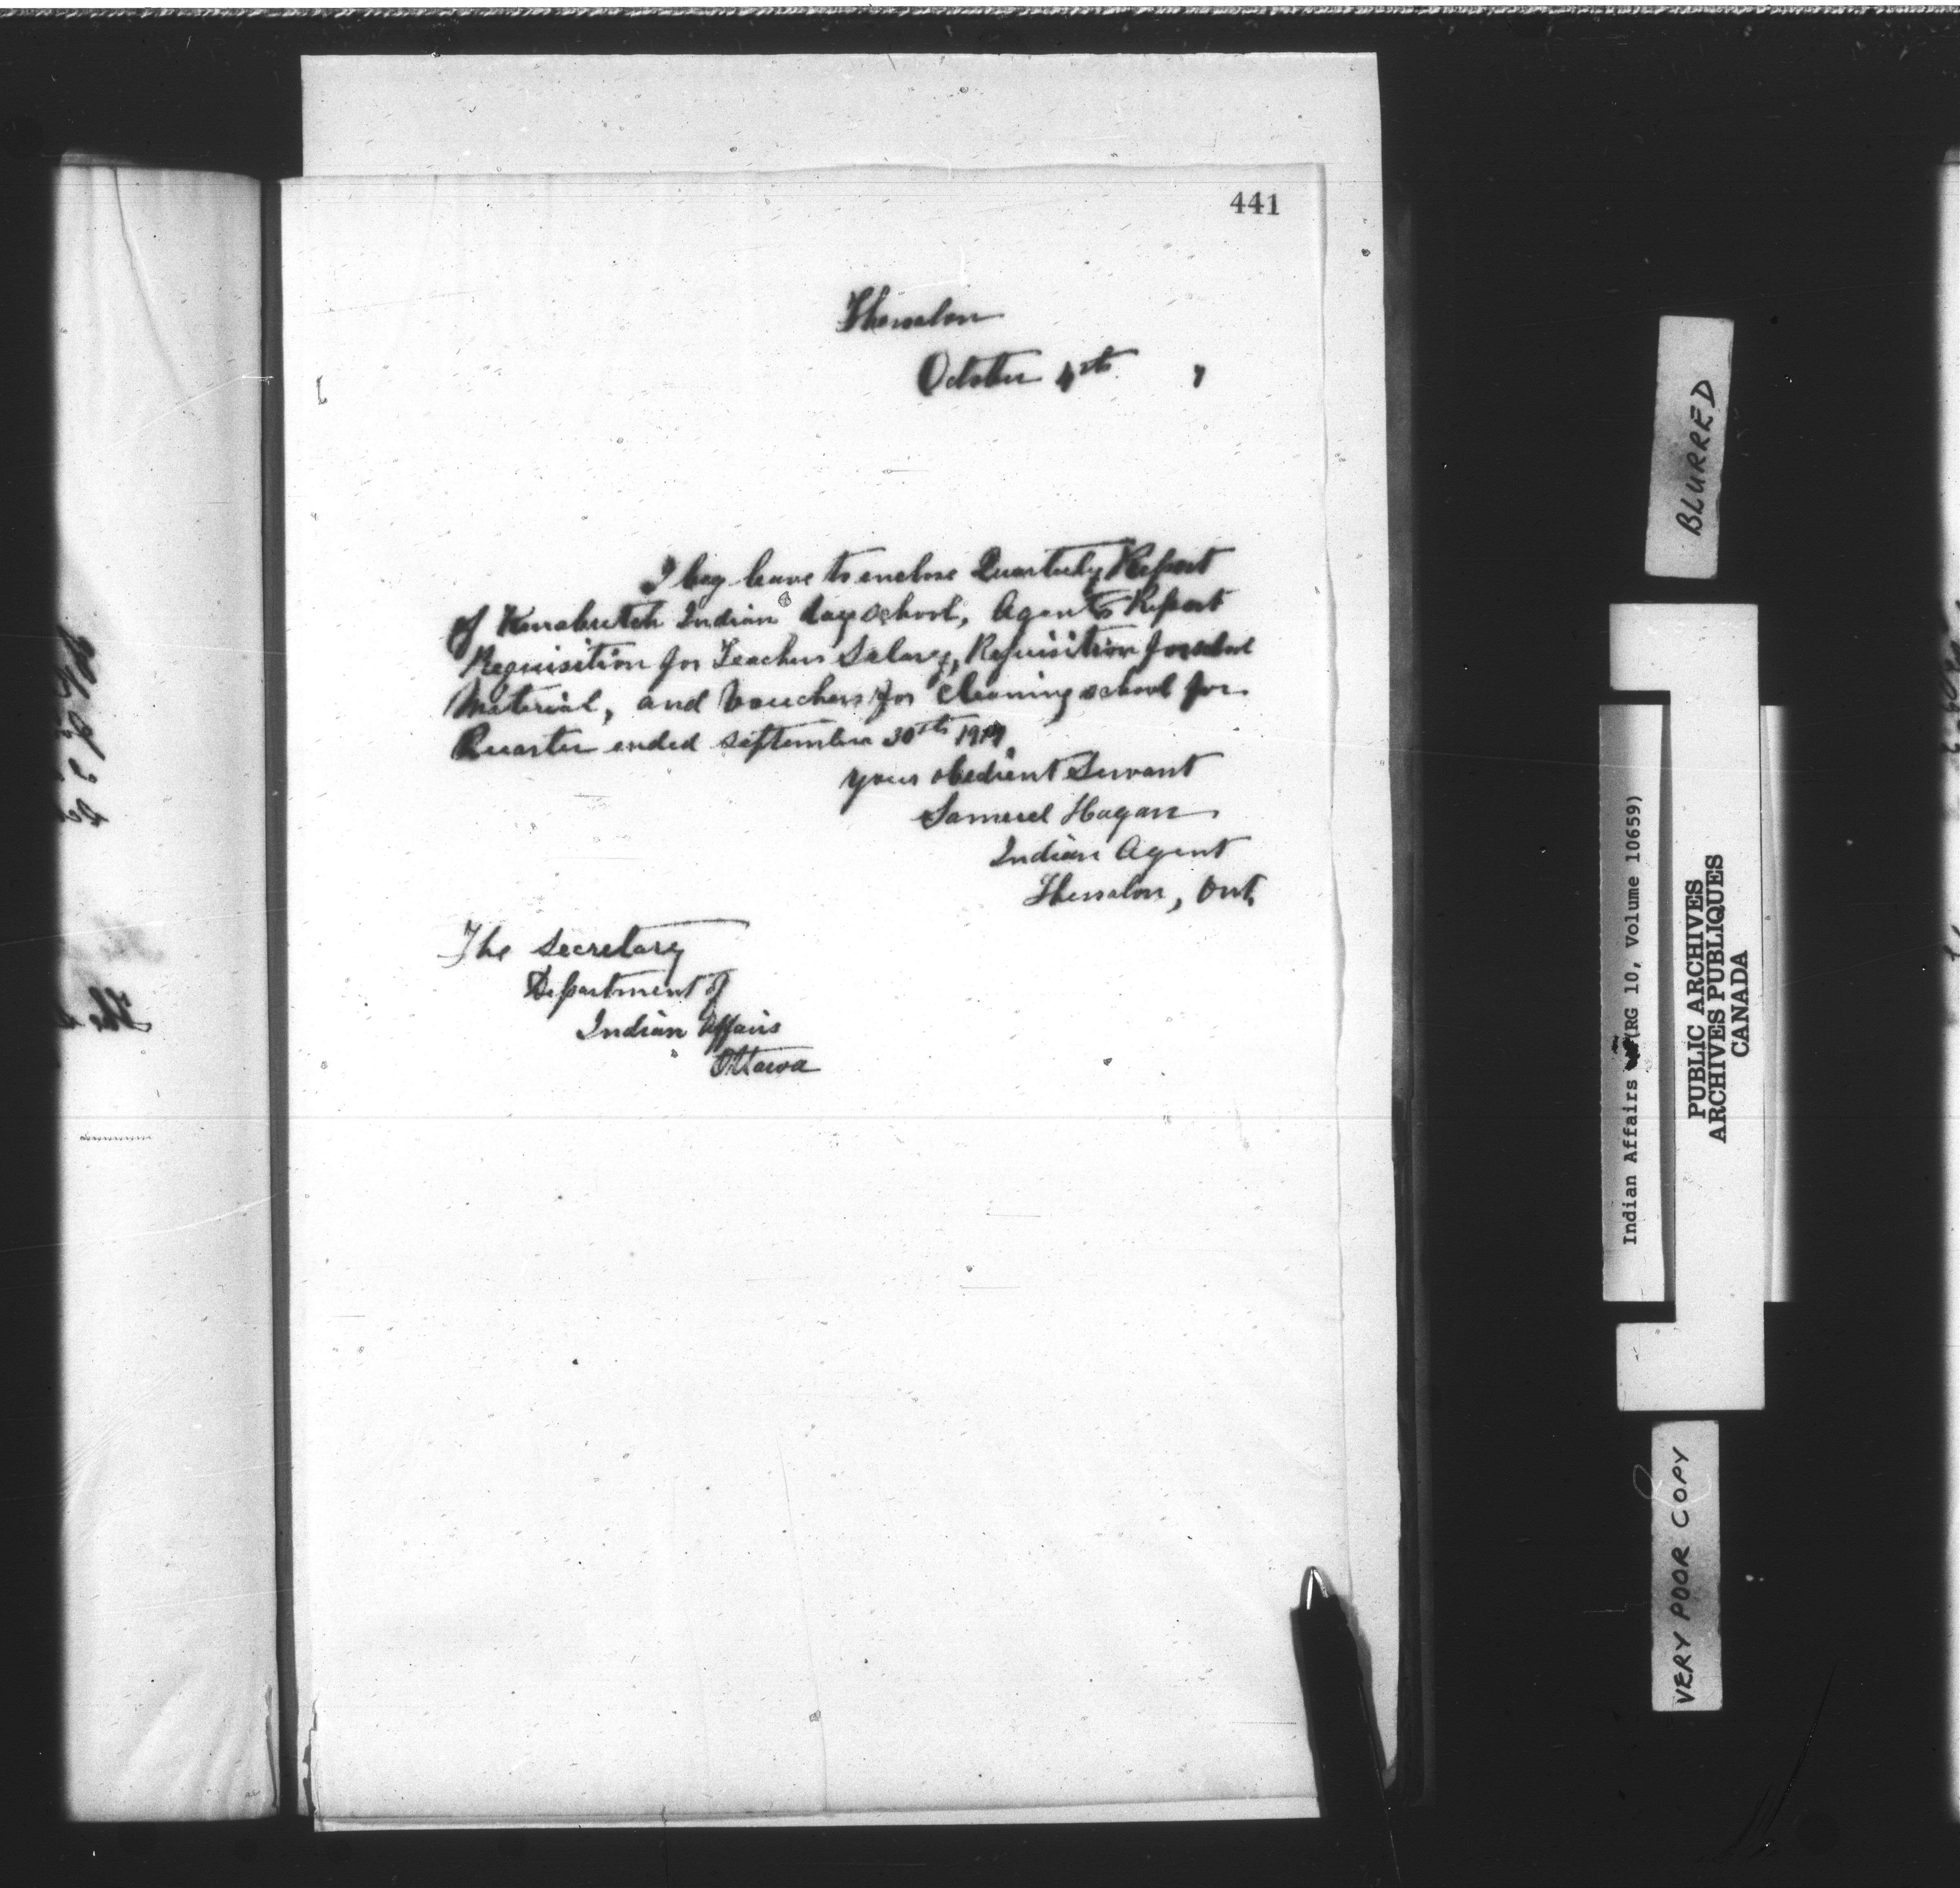 441
Thessalon
October 4th 7
I beg leave to enclose Quarterly Report
of Indian day school, Agents Report
Requisition for Teachers Salary, Requisition for school
Material, and Vouchers for cleaning school for
Quarter ended September 30th
your obedient Servant
Samuel Hagan
Indian Agent
Thessalon, Ont.
The Secretary
Department of
Indian Affairs
Ottawa
BLURRED
Indian Affairs (RG 10, Volume 10659)
PUBLIC ARCHIVES
ARCHIVES PUBLIQUES
CANADA
VERY POOR COPY